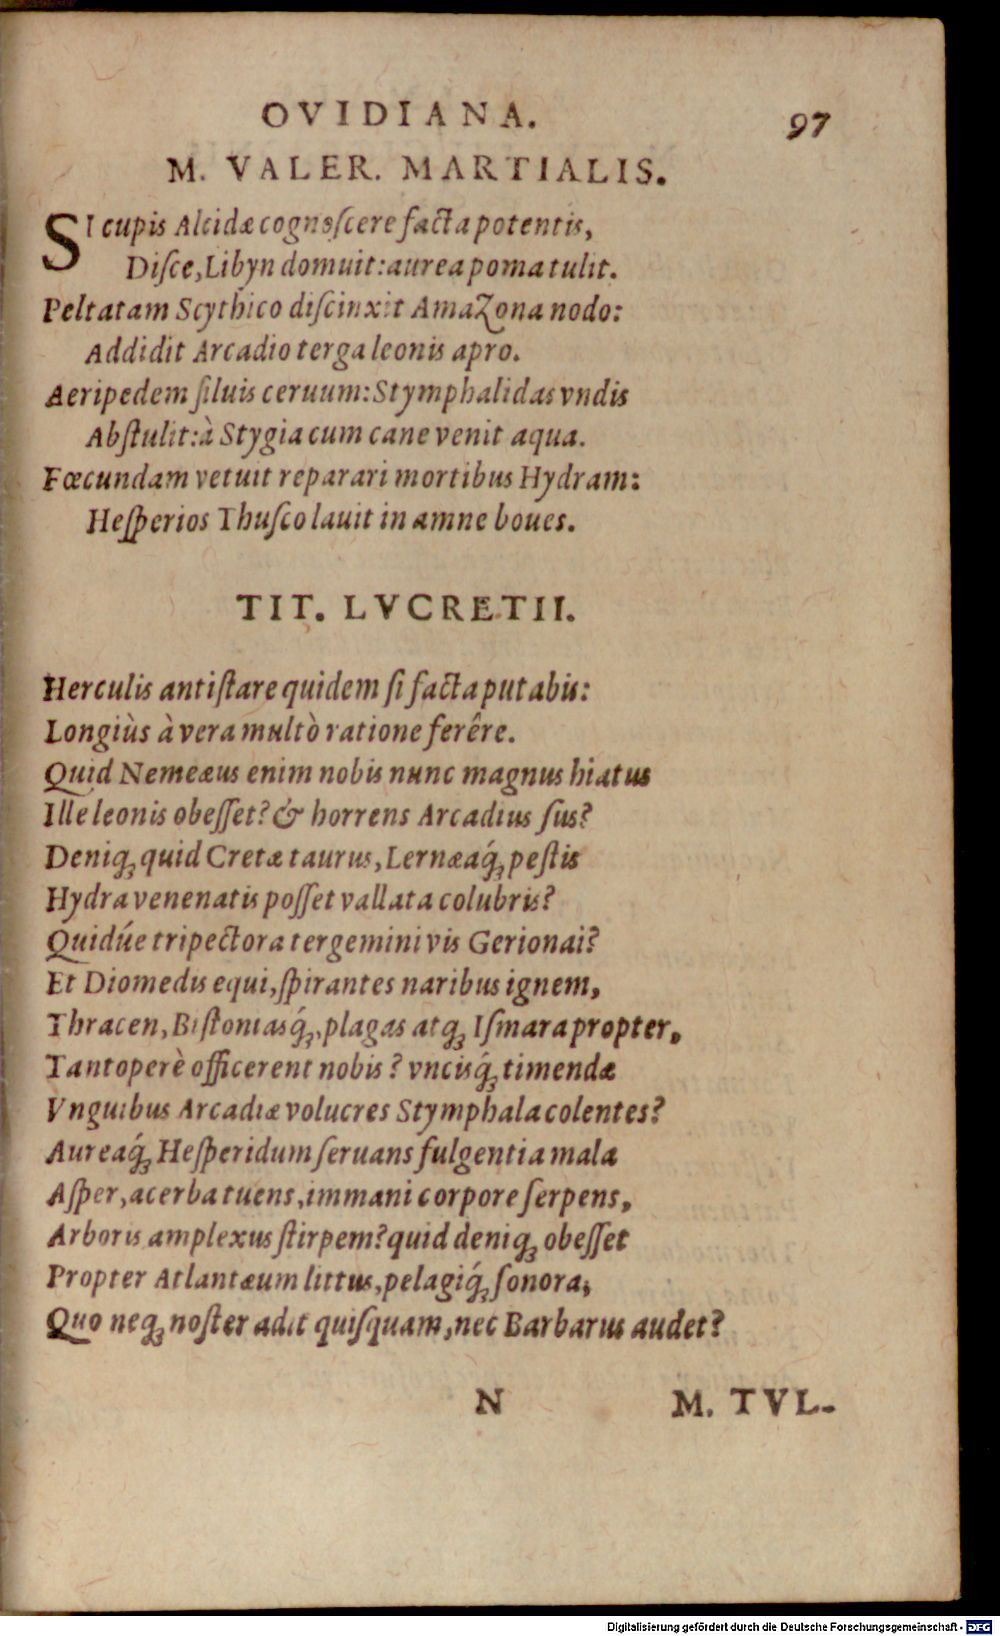 OVIDIANA. 97
M. VALER. MARTIALIS.
SI cupis Alcidæ cognoſcere facta potentis,
Diſce, Libyn domuit: aurea poma tulit.
Peltatam Scythico diſcinxit Amazona nodo:
Addidit Arcadio terga leonis apro.
Aeripedem ſiluis ceruum: Stymphalidas vndis
Abſtulit: à Stygia cum cane venit aqua.
Fœcundam vetuit reparari mortibus Hydram:
Heſperios Thuſco lauit in amne boues.
TIT. LVCRETII.
Herculis antiſtare quidem ſi facta putabis:
Longiùs à vera multò ratione ferêre.
Quid Nemeæus enim nobis nunc magnus hiatus
Ille leonis obeſſet? & horrens Arcadius ſus?
Deniq; quid Cretæ taurus, Lernæaq́; peſtis
Hydra venenatis poſſet vallata colubris?
Quidúe tripectora tergemini vis Gerionai?
Et Diomedis equi, ſpirantes naribus ignem,
Thracen, Biſtoniasq́;, plagas atq; Iſmara propter,
Tantoperè officerent nobis? vncisq́; timendæ
Vnguibus Arcadiæ volucres Stymphala colentes?
Aureaq́; Heſperidum ſeruans fulgentia mala
Aſper, acerba tuens, immani corpore ſerpens,
Arboris amplexus ſtirpem? quid deniq; obeſſet
Propter Atlantæum littus, pelagiq́; ſonora,
Quo neq; noſter adit quiſquam, nec Barbarus audet?
N M. TVL-
Digitalisierung gefördert durch die Deutsche Forschungsgemeinschaft - DFG